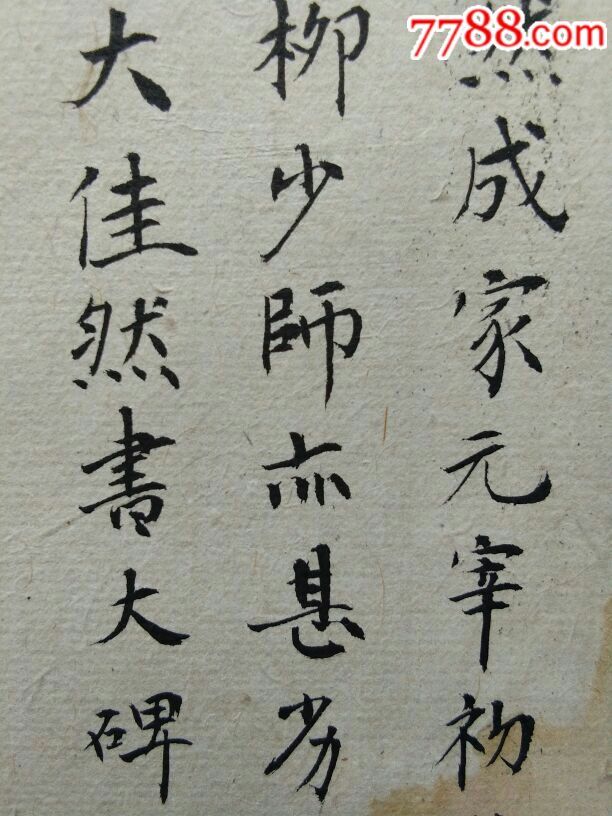 7788.com
然成家元宰初
柳少師亦甚劣
大佳然書大碑